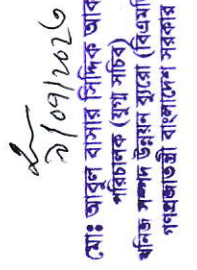 ৯/০৭/২০২৩
মোঃ আবুল বাসার সিদ্দিক আক
পরিচালক (যুগ্ম সচিব)
খনিজ সম্পদ উন্নয়ন ব্যুরো (বিএমডি
গণপ্রজাতন্ত্রী বাংলাদেশ সরকার